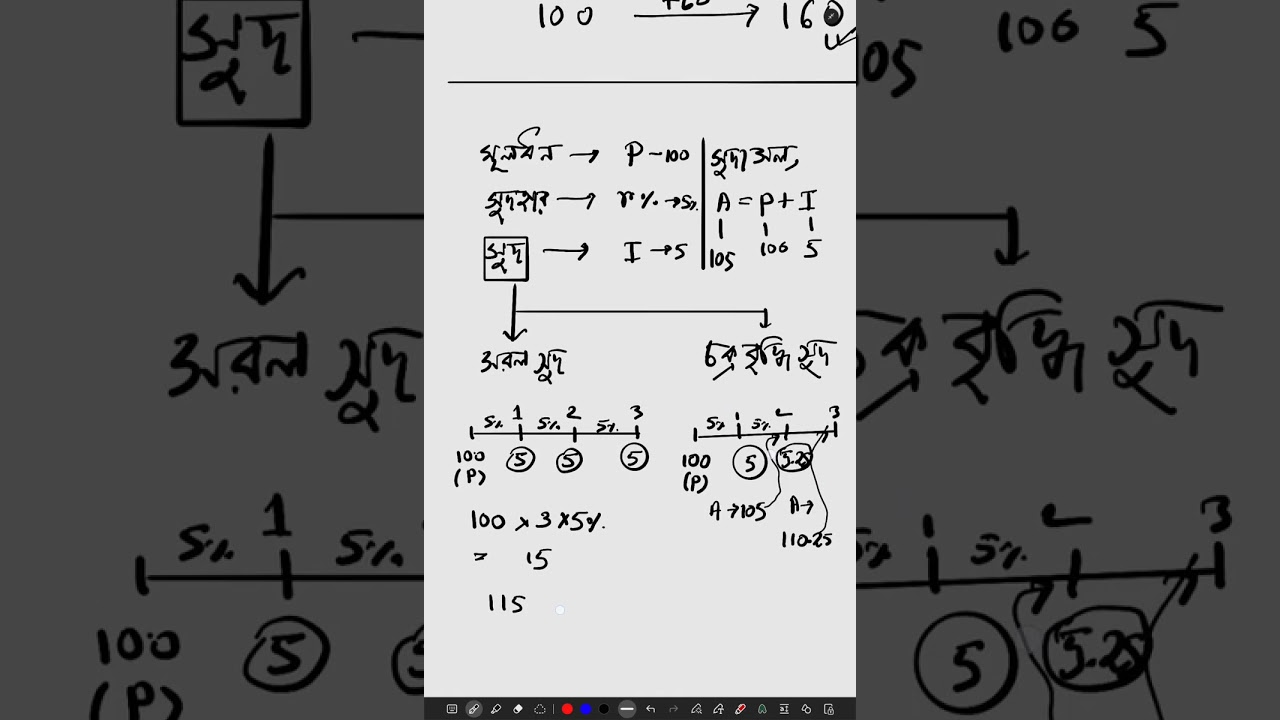 100 → 160
মূলধন → P - 100
সুদহার → r% → 5%
সুদ → I → 5
সুদাসল,
A = P + I
105 100 5
সরল সুদ
চক্রবৃদ্ধি সুদ
5% 1 5% 2 5% 3
100 5 5 5
(P)
100 × 3 × 5%
= 15
115
5% 1 5% 2 3
100 5 5.25
(P)
A → 105 A →
110.25